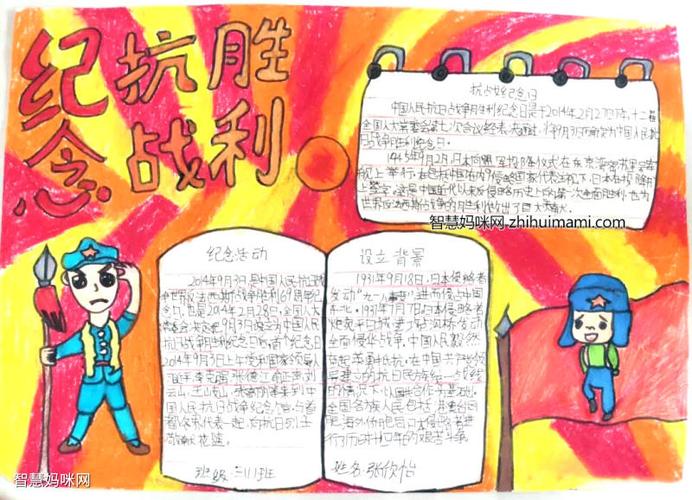 纪念
抗战
胜利
抗战纪念日
中国人民抗日战争胜利纪念日是于2014年2月27日下午,十二届
全国人大常委会第七次会议经表决通过,将9月3日确定为中国人民抗
日战争胜利纪念日。
1945年9月2日,日本向盟军投降仪式在东京湾密苏里号军
舰上举行。在包括中国在内的9个
上签字。这是中国近代以来反侵略历史上的第一次全面胜利,也为
世界反法西斯战争的胜利做出了巨大贡献。
智慧妈咪网 zhihuimami.com
纪念活动
2014年9月3日是中国人民抗日战
争暨世界反法西斯战争胜利69周年纪
念日,也是2014年2月28日,全国人大
常委会决定将9月3日确定为中国人民
抗日战争胜利纪念日后,首个纪念日
2014年9月3日上午党和国家领导人
张德江 俞正声 刘
云山 王岐山
国人民抗日战争纪念馆与首
都各界代表一起,向抗日烈士
敬献花篮。
班级:三(1)班
设立背景
1931年9月18日,日本侵略者
发动"九一八事变",进而侵占中国
东北。1937年7月7日,日本侵略者
炮轰宛平城,制造卢沟桥事变
全面侵华战争,中国人民毅然
奋起,英勇抵抗。在中国共产党倡
导建立的抗日民族统一战线
的情况下,以国共合作为基础,
全国各族人民包括
胞、海外侨胞同日本侵略者进
行了历时十四年的艰苦斗争
姓名:张欣怡
智慧妈咪网